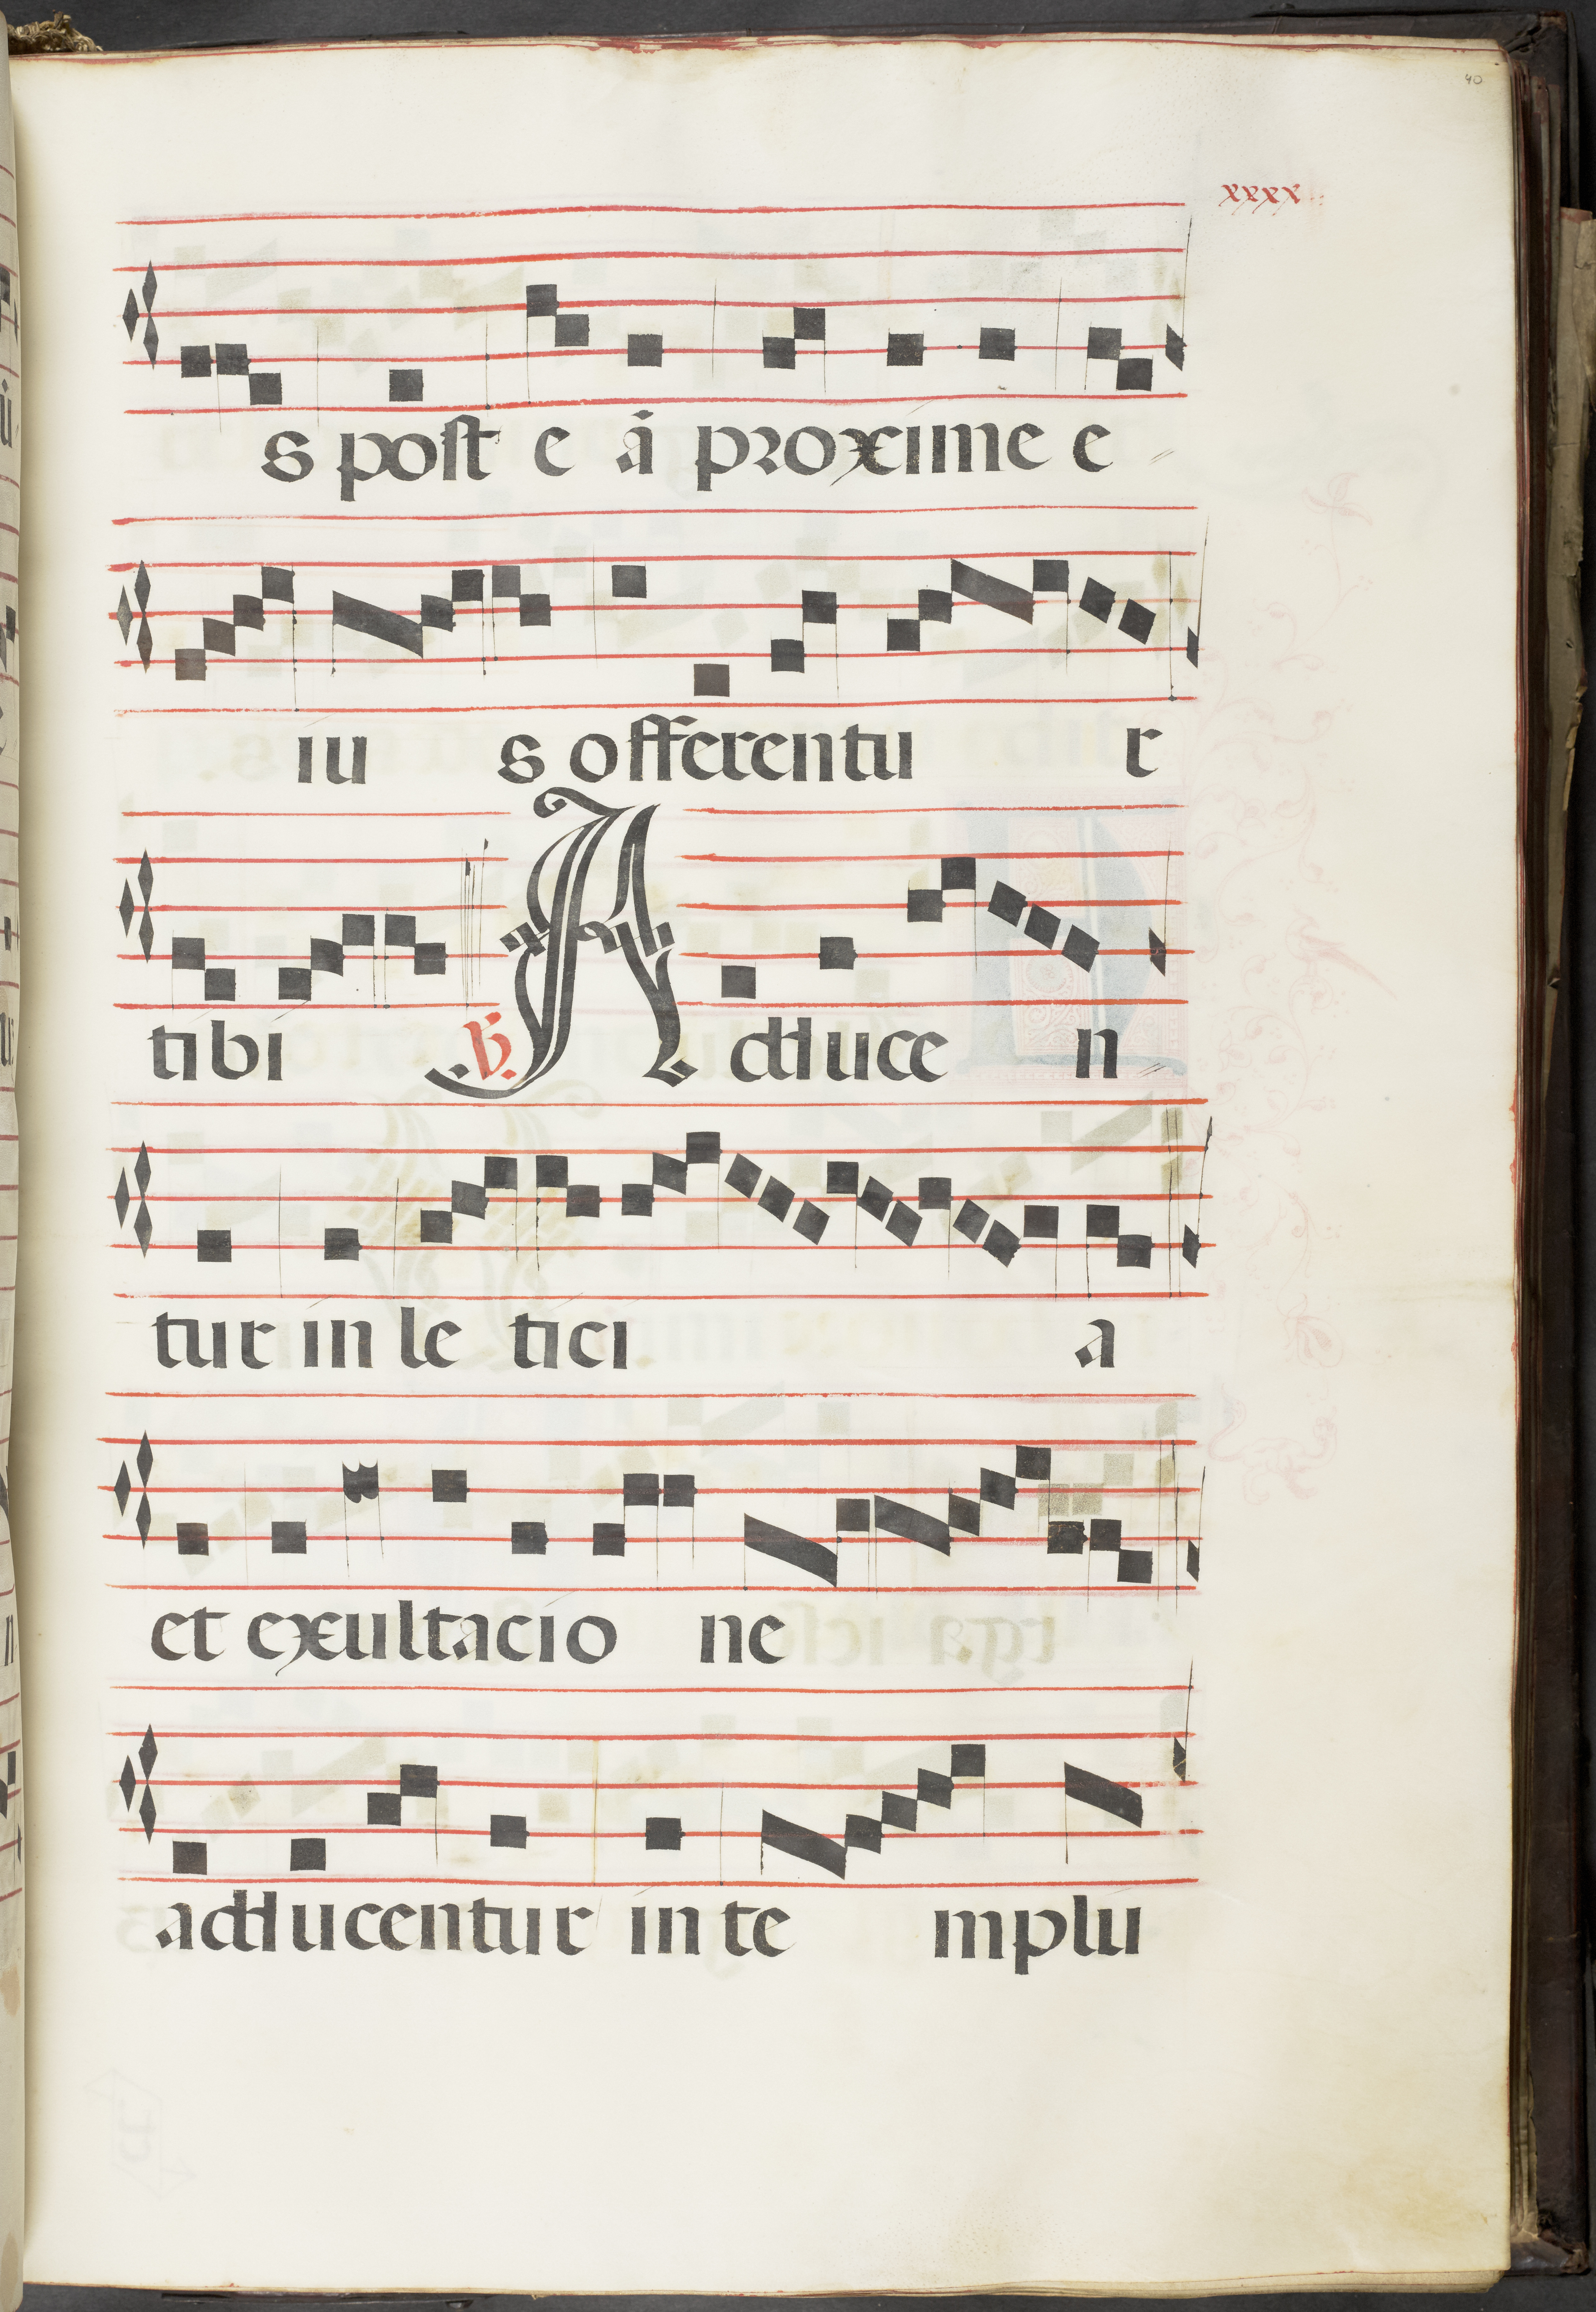 40
xxxx
s post e ā proxime e
iu s offerentu r
tibi ℣. A dduce n
tur in le tici a
et exultacio ne
adducentur in te mplu